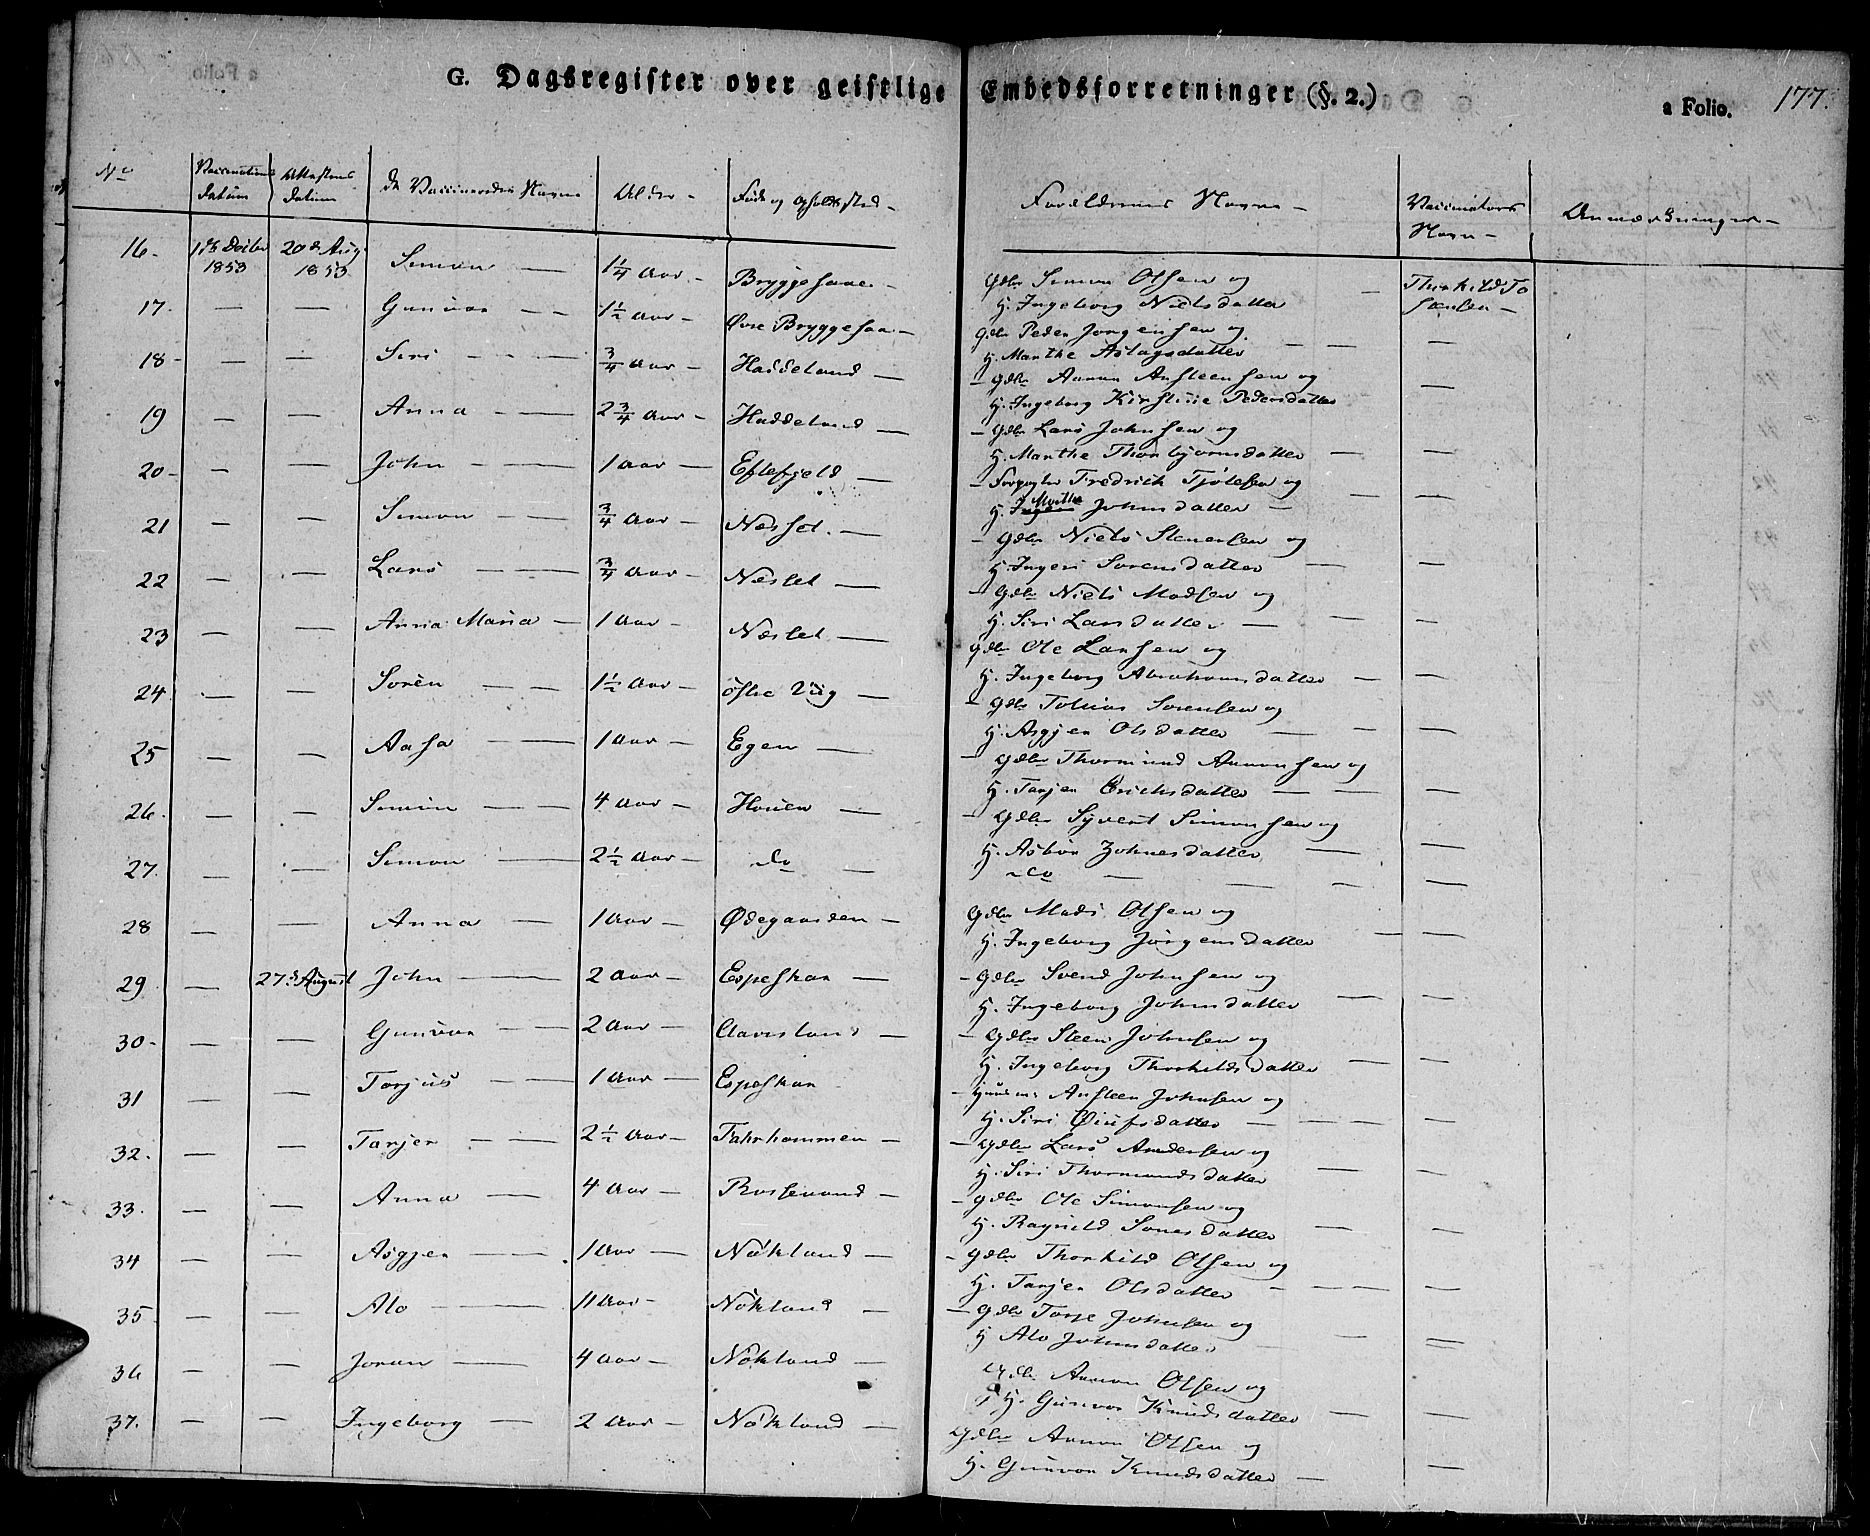 G. Dagsregister over geistlige Embedsforretninger (§. 2.)
a Folio. 177.
No Vaccinations Datum Attestens Datum de Vaccineredes Navne Alder Føde og Opholdssted Forældrenes Navne Vaccinators Navn Anmærkninger
16. 1853 20de Aug 1853 Simon 1 1/4 Aar Bryggesaae Gdbr Simon Olsen og
H. Ingeborg Nielsdatter Thorkild
17. — — Gunvor 1 1/2 Aar Øvre Bryggesaa Gdbr Peder Jørgensen og
H. Marthe Aslagsdatter —
18 — — Siri 3/4 Aar Haddeland Gdbr Aanon Ansteensen og
H. Ingeborg Kirstine Pedersdatter —
19 — — Anna 2 3/4 Aar Haddeland Gdbr Lars Johnsen og
H. Marthe Thorbjørnsdatter —
20 — — John 1 Aar Eftefjeld Fredrik Tjølesen og
H. Marthe Johnsdatter —
21 — — Simon 3/4 Aar Næsset Gdbr Niels Stenersen og
H. Ingeri Sørensdatter —
22 — — Lars 3/4 Aar Næslet Gdbr Niels Madsen og
H. Siri Larsdatter —
23 — — Anna Maria 1 Aar Næslet Gdbr Ole Larsen og
H. Ingeborg Abrahamsdatter —
24 — — Sørèn 1 1/2 Aar østre Viig Gdbr Tobias Sørensen og
H. Asgjer Olsdatter —
25 — — Aasa 1 Aar Egen Gdbr Thormund Aanonsen og
H. Tarjer Erichsdatter —
26. — — Simon 4 Aar Houen Gdbr Syvert Simonsen og
H. Asbør Johnesdatter —
27. — — Simon 2 1/2 Aar do do —
28 — — Anna 1 Aar Ødegaarden Gdbr Mads Olsen og
H. Ingeborg Jørgensdatter —
29 — 27de August John 2 Aar Espeskar Gdbr Svend Johnsen og
H. Ingeborg Johnsdatter —
30 — — Gunvor 2 Aar Aavisland Gdbr Steen Johnsen og
H. Ingeborg Thorkildsdatter —
31 — — Torjus 1 Aar Espeskar Huusm. Ansteen Johnsen og
H. Siri Øiufsdatter —
32. — — Tarjer 2 1/2 Aar Fahrhommen Gdbr Lars Andersen og
H. Siri Thormundsdatter —
33. — — Anna 4 Aar Rossevand Gdbr Ole Simonsen og
H. Ragnild Sonesdatter —
34 — — Asgjer 1 Aar Nökland Gdbr Thorkild Olsen og
H. Tarjer Olsdatter —
35 — — Alo 11 Aar Nökland Gdbr Torje Johnsen og
H Alo Johnsdatter —
36 — — Joran 4 Aar Nökland Gdbr Aanon Olsen og
H. Gunvor Knudsdatter —
37. — — Ingeborg 2 Aar Nökland Gdbr Aanon Olsen og
H. Gunvor Knudsdatter —